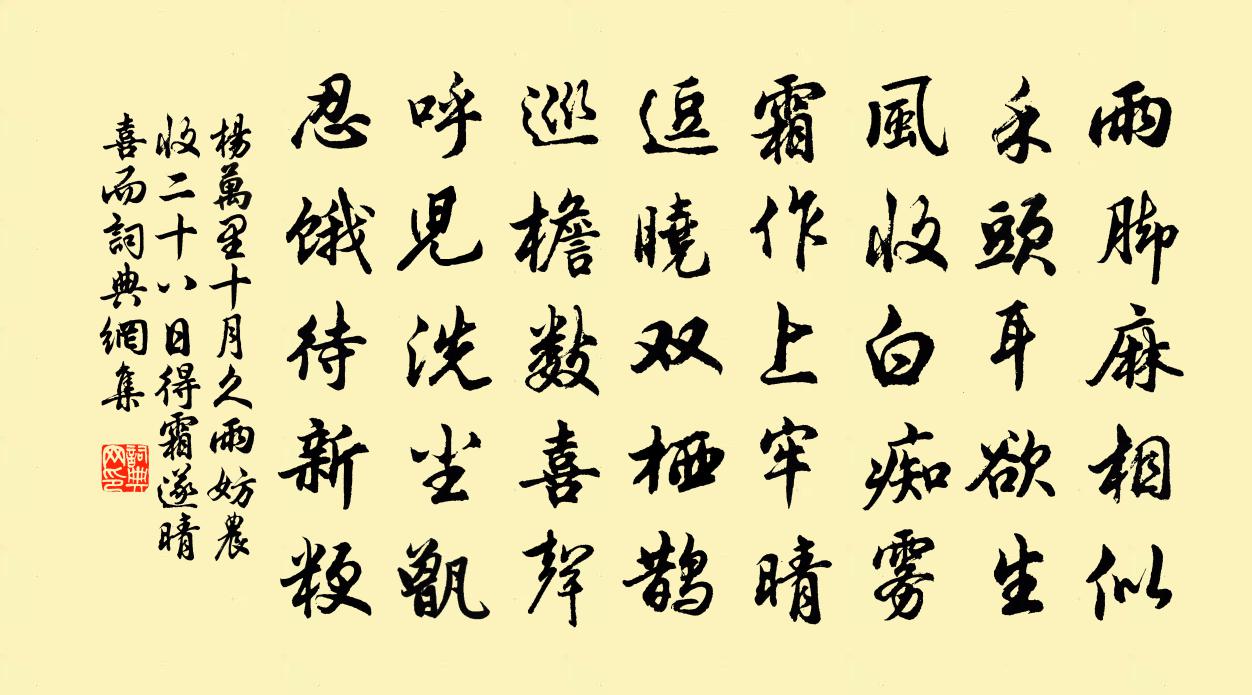 雨脚麻相似
禾頭耳欲生
風收白痴雾
霜作上牢晴
逗曉双栖鹊
巡檐數喜聲
呼兒洗尘甑
忍饿待新粳
楊萬里十月久雨妨農
收二十八日得霜遂晴
喜而詞典網集
詞典网印